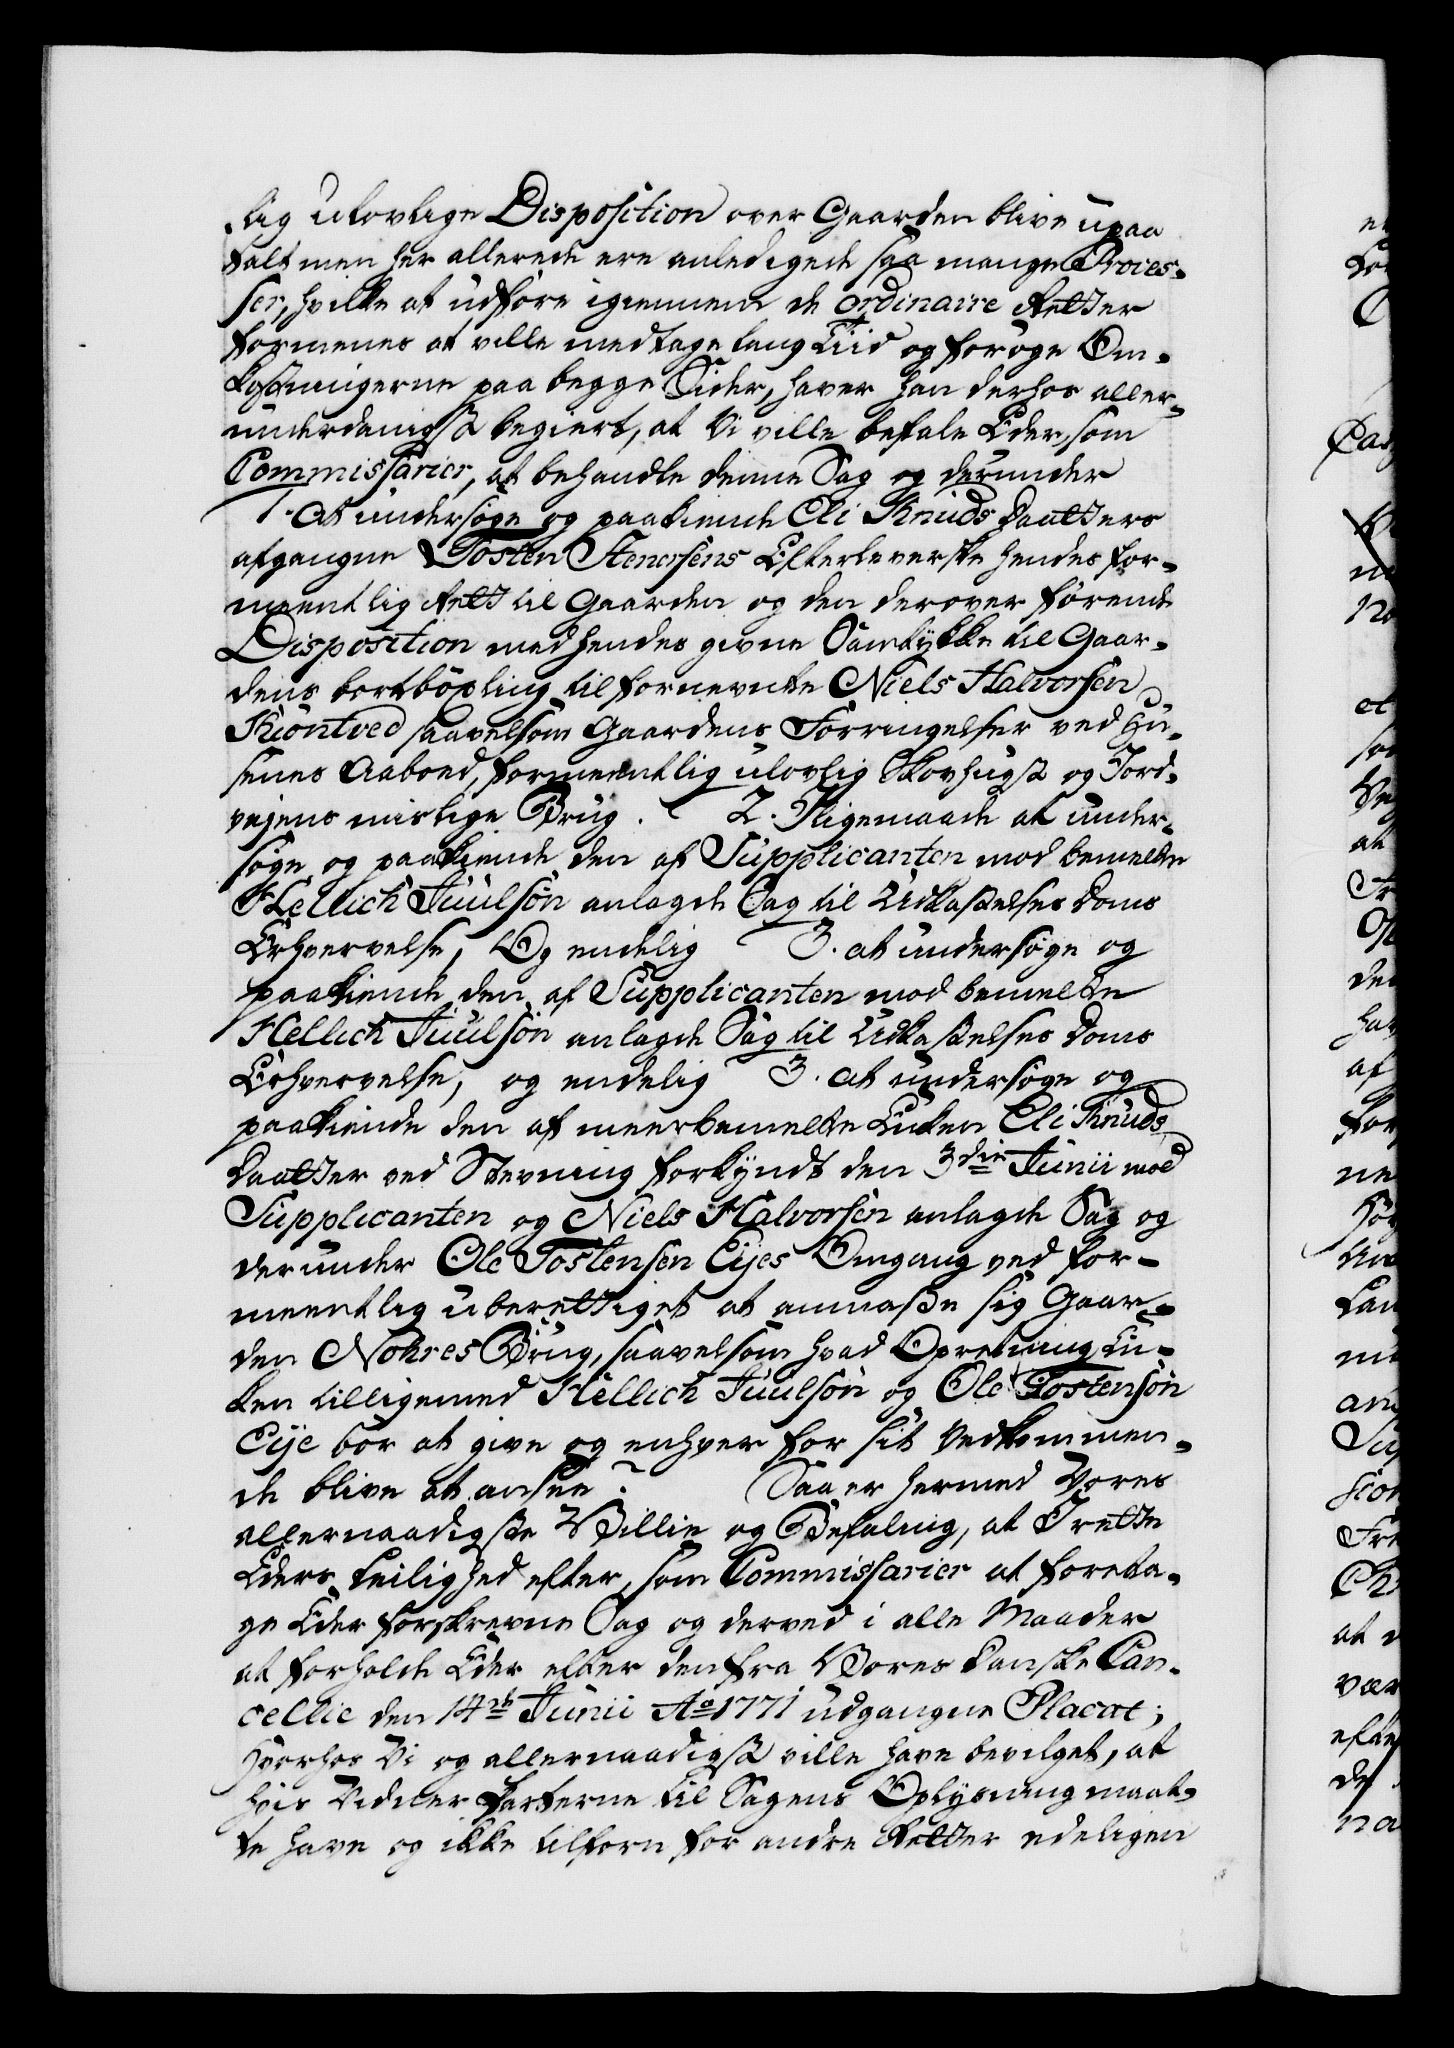 lig Ulovlige Disposition over Gaarden blive upaa
talt men her allerede ere anledigede saa mange Proces-
ser, hvilke at udføre igiennem de ordinaire Retter
formenes at ville medtage lang Tiid og forøge Om-
kostningerne paa begge Sider, haver han derhos aller-
underdanigst begiert, at Vi ville befale Eder, som
Commissarier, at behandle denne Sag og derunder
1. At undersøge og paakiende Eli Knuds Daatters
afgangne Tosten Stenersens Efterleverske hendes for-
meentlig Rett til Gaarden og den derover førende
Disposition med hendes givne Samtykke til Gaar-
dens bortböxling til fornevnte Niels Halvorsen
Kiöntved saavelsom Gaardens Forringelser ved Hu-
senes Aaboed, formeentlig ulovlig Skovhugst og Jord-
vejens mislige Brug. 2. Iligemaade at under-
søge og paakiende den af Supplicanten mod bemelte
Hellich Juulsön anlagde Sag til Udkastelses Doms
Erhvervelse, Og endelig 3. at undersøge og
paakiende den af Supplicanten mod bemelte
Hellich Juulsön anlagde Sag til Udkastelses Doms
Erhvervelse, og endelig 3. at undersøge og
paakiende den af meerbemelte Enken Eli Knuds
Daatter ved Stevning forkyndt den 3die Junii mod
Supplicanten og Niels Halvorsen anlagde Sag og
derunder Ole Tostensen Eijes Omgang ved for-
meentlig uberettiget at anmasse sig Gaar-
den Nohres Brug, saavelsom hvad Opretning En-
ken tilligemed Hellich Juulsön og Ole Tostensön
Eije bör at give og enhver for sit Vedkommen-
de blive at ansee? Saa er hermed Vores
allernaadigste Villie og Befaling, at I rette
Eders Leilighed efter, som Commissarier at foreta-
ge Eder forskrevne Sag og derved i alle Maader
at forholde Eder efter den fra Vores Danske Can-
cellie den 14de Junii Ao 1771 udgangne Placat;
Hvorhos Vi og allernaadigst ville have bevilget, at
hvis Vidner Parterne til Sagens Oplysning maat-
te have og ikke tilforn for andre Retter edeligen